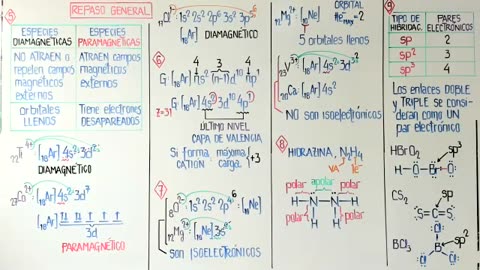 REPASO GENERAL
5
ESPECIES DIAMAGNÉTICAS
ESPECIES PARAMAGNÉTICAS
NO ATRAEN o
repelen campos
magnéticos
externos
ATRAEN campos
magnéticos
externos
orbitales
LLENOS
Tiene electrones
DESAPAREADOS
[₁₈Ar] 4s² 3d²
DIAMAGNÉTICO
₂₇Co²⁺: [₁₈Ar] 4s² 3d⁷
[₁₈Ar] ↑↓ ↑↓ ↑ ↑ ↑
3d
PARAMAGNÉTICO
1s² 2s² 2p⁶ 3s² 3p⁵
[₁₈Ar] DIAMAGNÉTICO
6
4 3 4
G: [₁₈Ar] ns² (n-1)d¹⁰ np¹
G: [₁₈Ar] 4s² 3d¹⁰ 4p¹
Z=31
ÚLTIMO NIVEL
CAPA DE VALENCIA
Si forma máxima
CATIÓN carga
+3
7
₈O²⁻: 1s² 2s² 2p⁴ ⁶ [₁₀Ne]
₁₂Mg²⁺: [₁₀Ne] 3s²
son ISOELECTRÓNICOS
₁₂Mg²⁺: [₁₀Ne]
ORBITAL
#e⁻máx = 2
5 orbitales llenos
₂₃V³⁺: [₁₈Ar] 4s² 3d³
₂₀Ca: [₁₈Ar] 4s²
NO son isoelectrónicos
8
HIDRAZINA, N₂H₄
VA 1e⁻
polar apolar polar
H-N-N-H
polar polar
H H
9
TIPO DE HIBRIDAC.
PARES ELECTRÓNICOS
sp 2
sp² 3
sp³ 4
Los enlaces DOBLE
y TRIPLE se consi-
deran como UN
par electrónico
HBrO₂
sp³
H-O-Br-O
CS₂
sp
S=C=S
BCl₃
Cl
sp²
B
Cl Cl